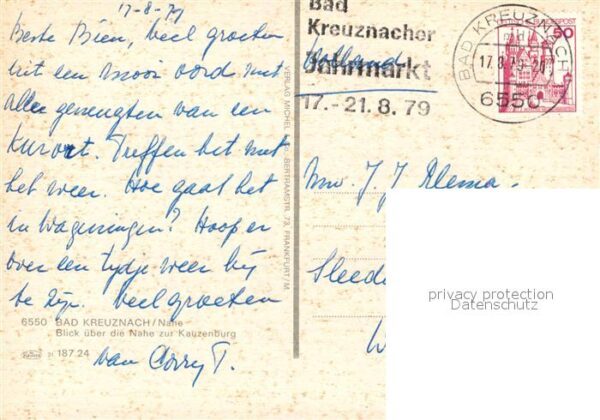 17-8-79
Beste Bien, veel groeten
uit een mooi oord met
alle geneugten van een
Kurort. Treffen het met
het weer. Hoe gaat het
in Wageningen? Hoop er
over een tydje weer bij
te zijn. Veel groeten
van Corry T.
6550 BAD KREUZNACH/Nahe
Blick über die Nahe zur Kauzenburg
187.24
VERLAG MICHEL BERTRAMSTR. 73, FRANKFURT/M.
Bad
Kreuznacher
Jahrmarkt
17.-21.8.79
Holland
BAD KREUZNACH
17.8.79-20
6550
50
Mw. J. J. Klema
W
privacy protection
Datenschutz